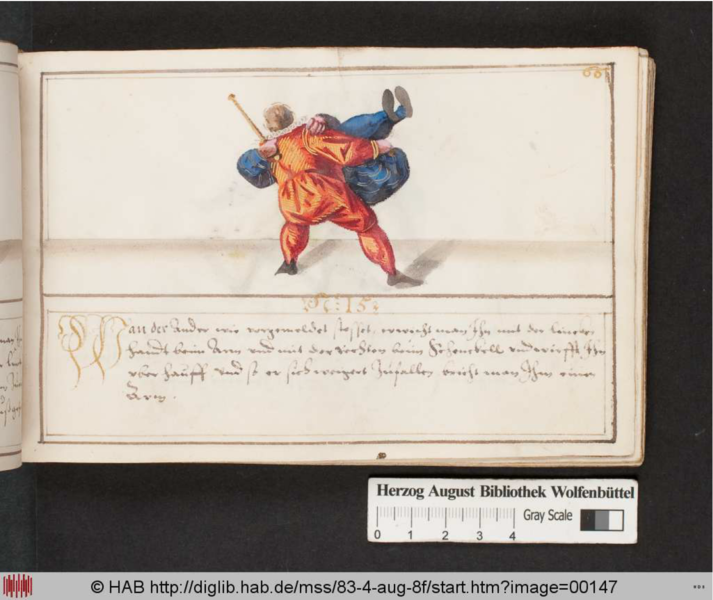 66
N: 15
Wan der Ander wie vorgemeldet stosset, erwischt man Ihn mit der lincken
handt beim Arm vnd mit der rechten beim Schenckell vnd wirfft Ihn
vber hauff vnd so er sich weigert zufallen bricht man Ihm einen
Arm.
Herzog August Bibliothek Wolfenbüttel
Gray Scale
0 1 2 3 4
© HAB http://diglib.hab.de/mss/83-4-aug-8f/start.htm?image=00147